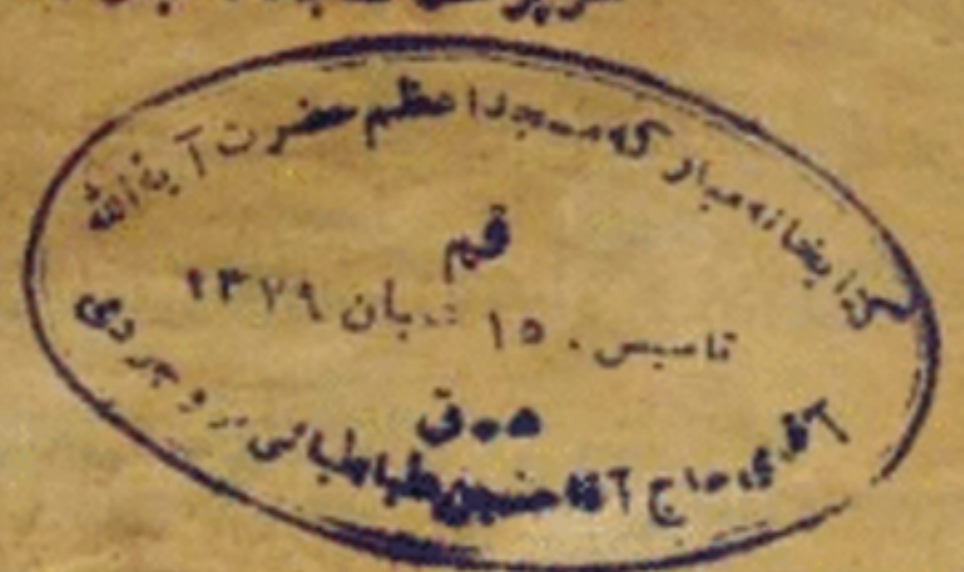 کتابخانه مبارکه مسجد اعظم حضرت آیة الله
قم
تاسیس ۱۵ شعبان ۱۳۷۹
ه ق
آقای حاج آقا حسین طباطبائی بروجردی